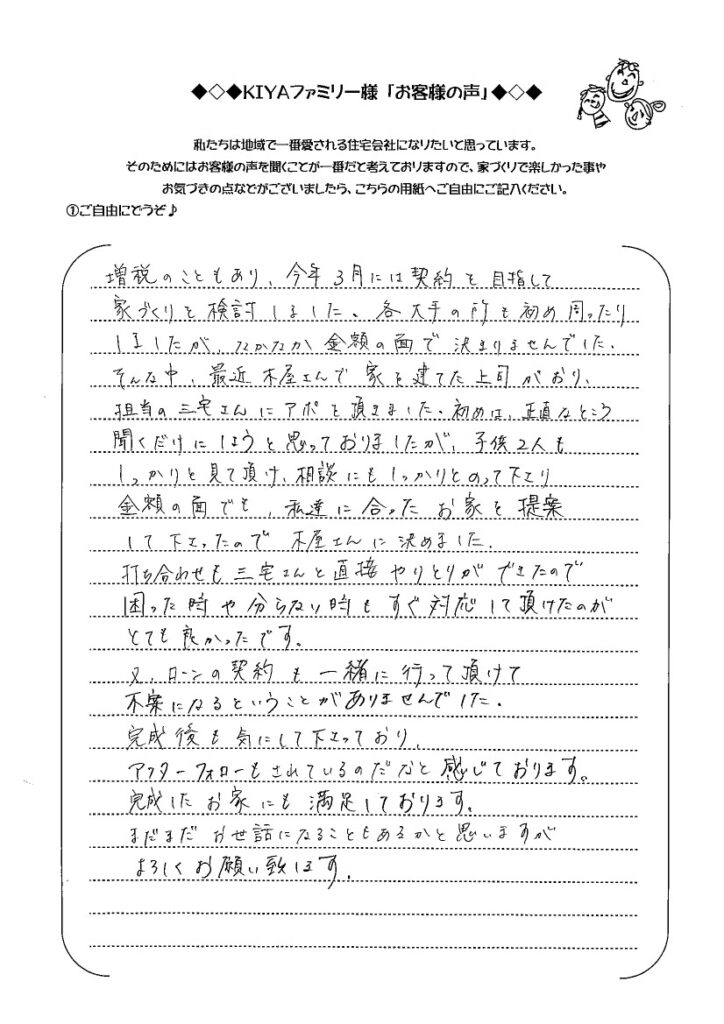 ◆◇◆KIYAファミリー様「お客様の声」◆◇◆
私たちは地域で一番愛される住宅会社になりたいと思っています。
そのためにはお客様の声を聞くことが一番だと考えておりますので、家づくりで楽しかった事や
お気づきの点などがございましたら、こちらの用紙へご自由にご記入ください。
①ご自由にどうぞ♪
増税のこともあり、今年3月には契約を目指して
家づくりを検討しました。各大手の所も初め周ったり
しましたが、なかなか金額の面で決まりませんでした。
そんな中、最近木屋さんで家を建てた上司がおり、
担当の三宅さんにアポを頂きました。初めは、正直なところ
聞くだけにしようと思っておりましたが、子供2人も
しっかりと見て頂け、相談にもしっかりとのって下さり
金額の面でも、私達に合ったお家を提案
して下さったので木屋さんに決めました。
打ち合わせも三宅さんと直接やりとりができたので
困った時や分らない時もすぐ対応して頂けたのが
とても良かったです。
又、ローンの契約も一緒に行って頂けて
不案になるということがありませんでした。
完成後も気にして下さっており、
アフターフォローもされているのだなと感じております。
完成したお家にも満足しております。
まだまだお世話になることもあるかと思いますが
よろしくお願い致します。